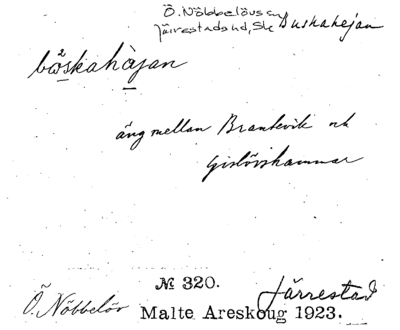 Ö. Nöbbelövs sn
Järrestads hd, Sk Buskahejan
bu²skahàjan
äng mellan Brantevik och
Gislövshammar
№ 320.
Ö. Nöbbelöv Järrestad
Malte Areskoug 1923.